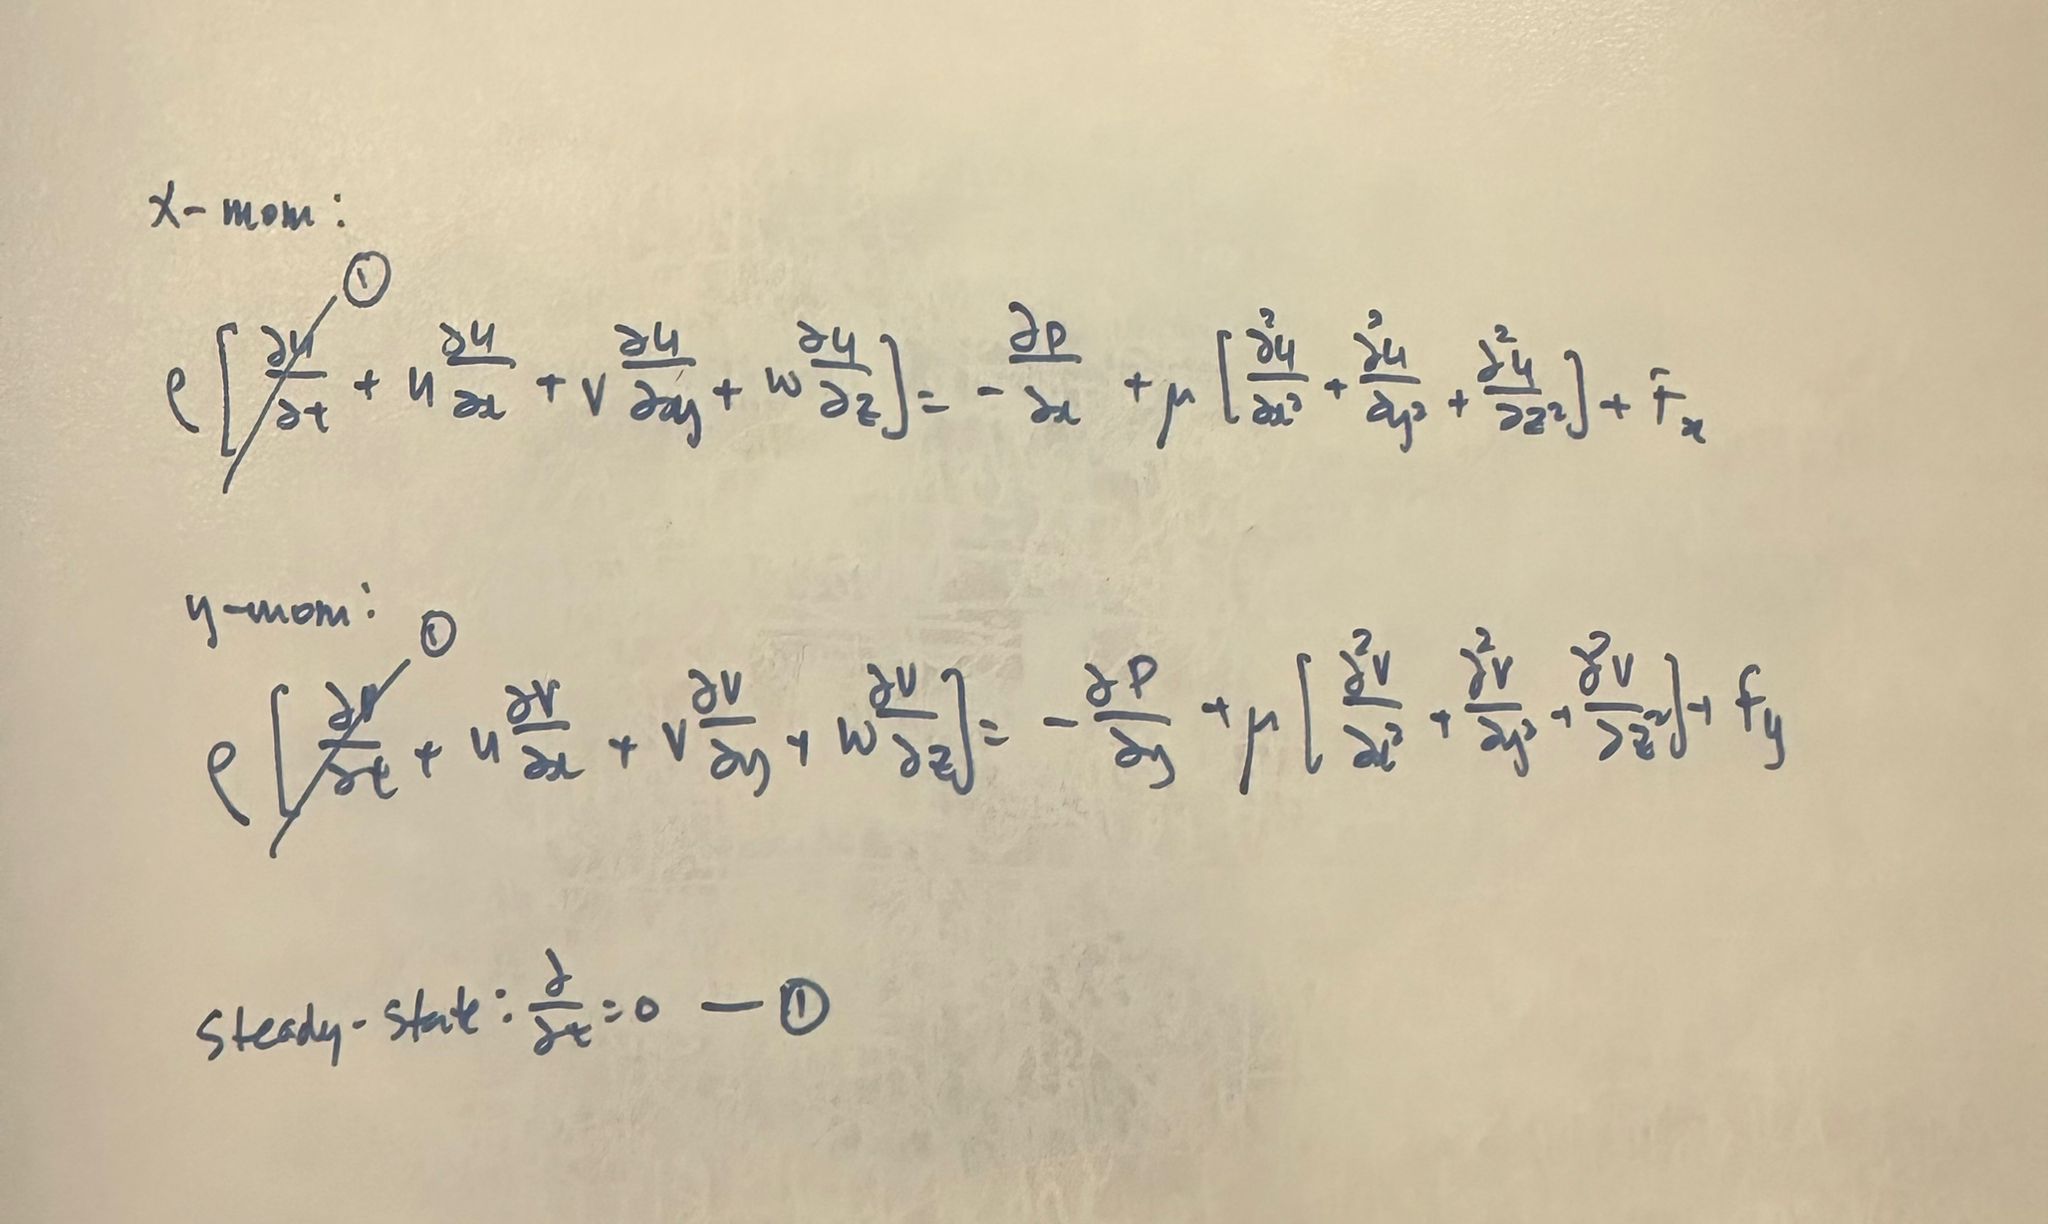 x-mom:
①
ρ[∂u/∂t + u ∂u/∂x + v ∂u/∂y + w ∂u/∂z] = -∂p/∂x + μ[∂²u/∂x² + ∂²u/∂y² + ∂²u/∂z²] + Fx
y-mom:
①
ρ[∂v/∂t + u ∂v/∂x + v ∂v/∂y + w ∂v/∂z] = -∂P/∂y + μ[∂²v/∂x² + ∂²v/∂y² + ∂²v/∂z²] + Fy
Steady-state: ∂/∂t = 0 — ①